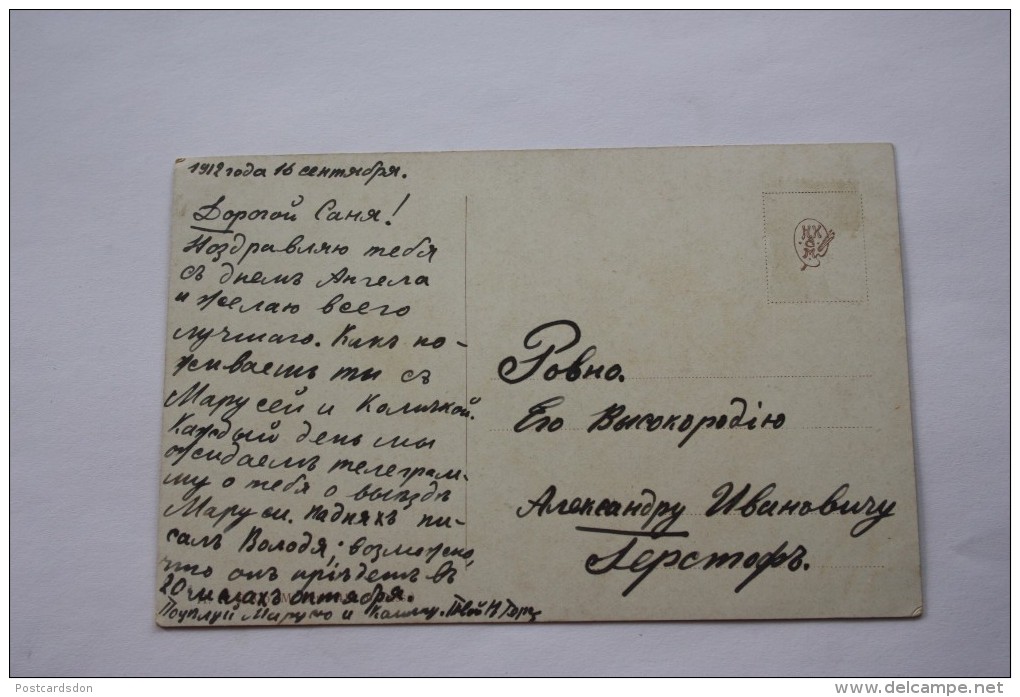 1912 года 16 сентября.
Дорогой Саня!
Поздравляю тебя
съ днемъ Ангела
и желаю всего
лучшаго. Какъ по-
живаешь ты съ
Марусей и Количкой.
Каждый день мы
ожидаемъ телеграм-
му о тебя о выѣздѣ
Маруси. На дняхъ пи-
салъ Володя; возможно,
что онъ пріѣдетъ въ
20 числахъ октября.
Поцѣлуй Марусю и Колю. Твой
Ровно.
Его Высокородію
Александру Ивановичу
Герстофъ.
Postcardsdon
http://www.delcampe.net